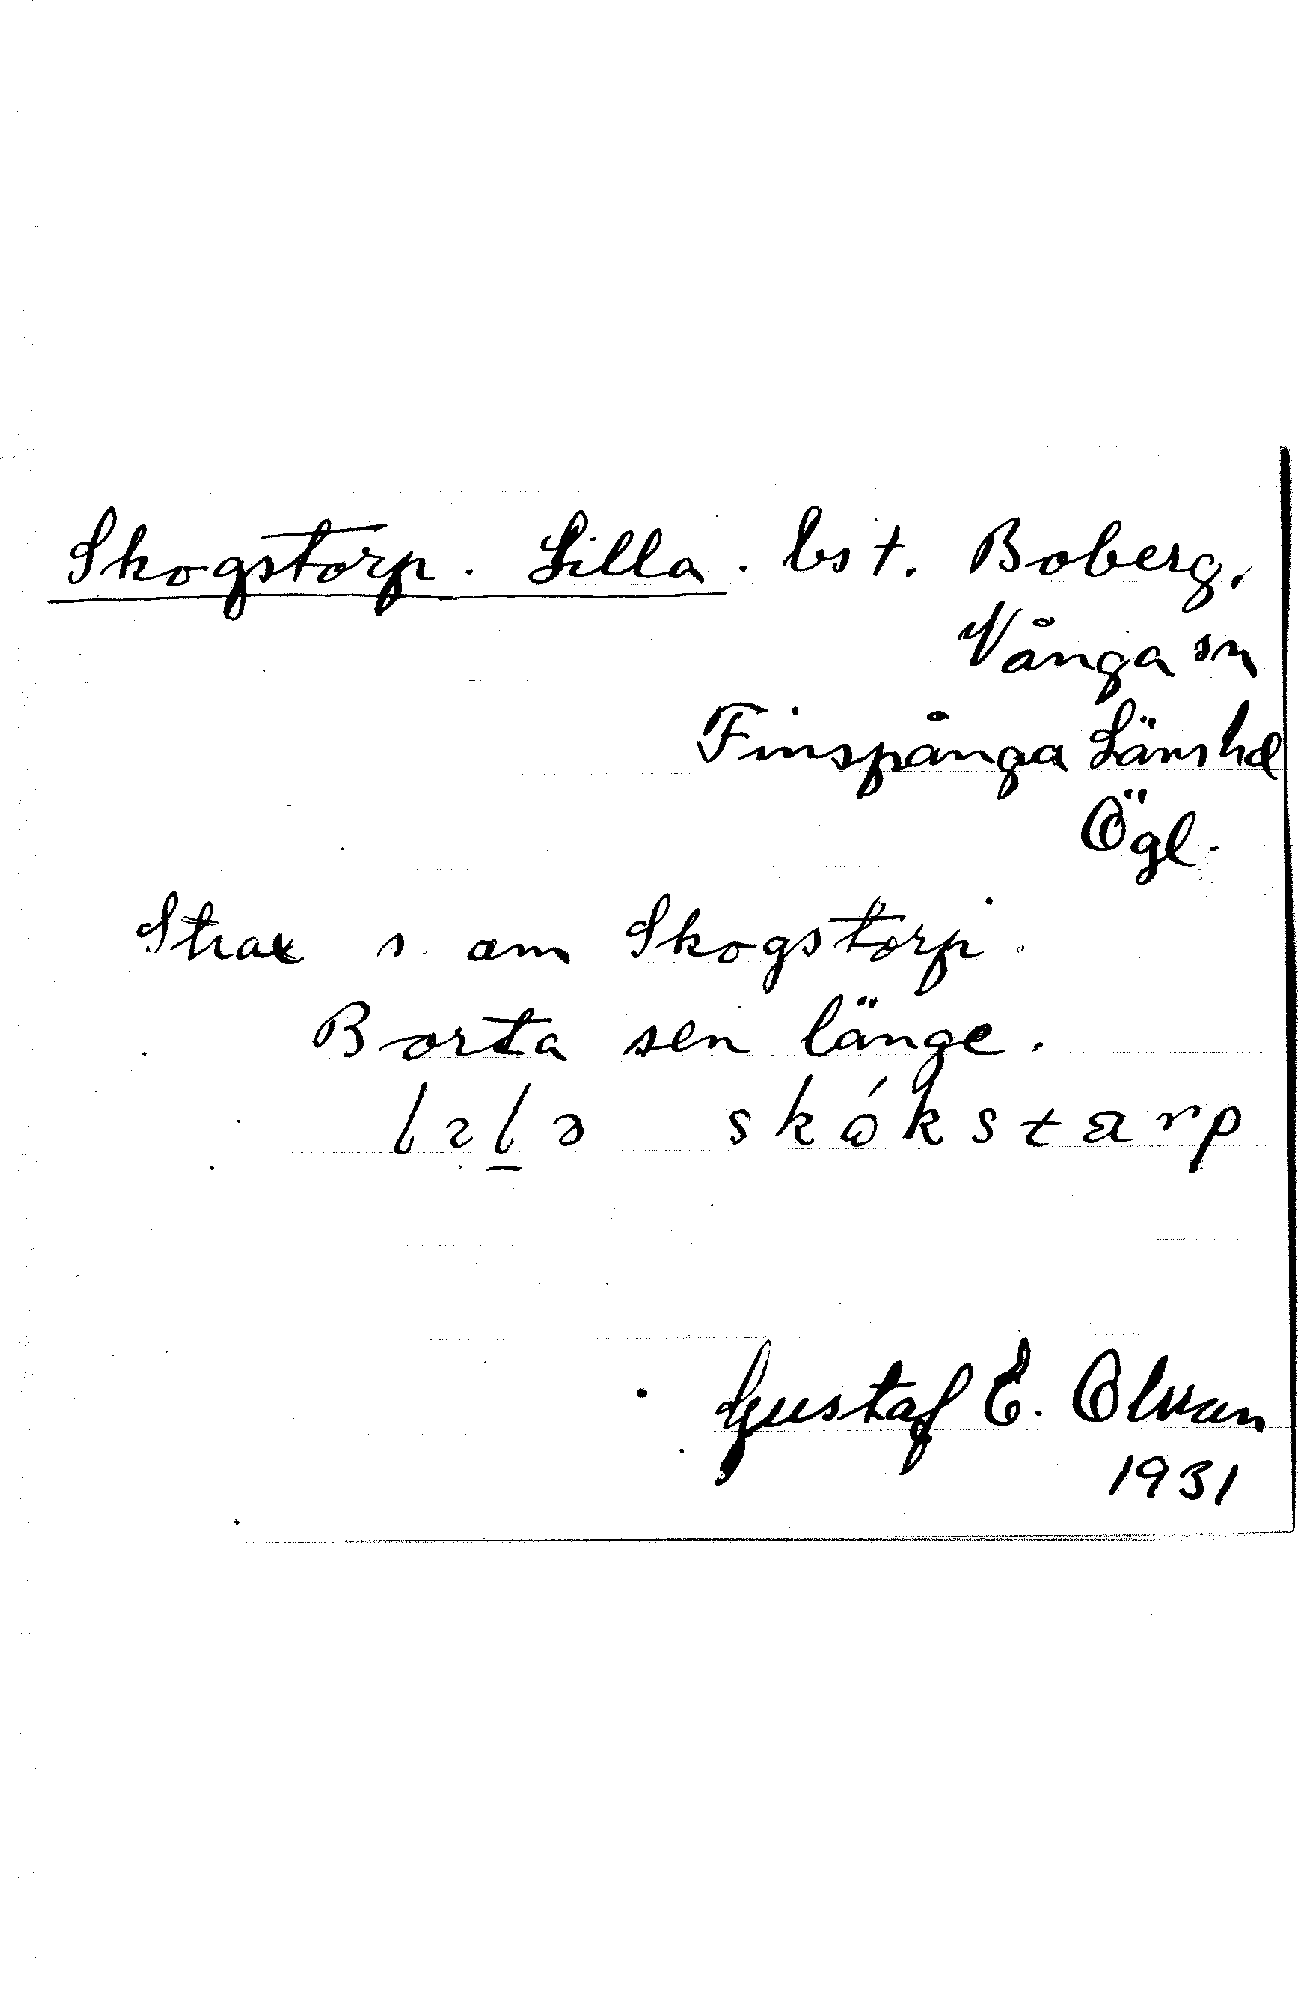 Skogstorp. Lilla. bst. Boberg.
Vånga sn
Finspånga Länshd
Ögl.
Strax s. om Skogstorp.
Borta sen länge.
lɩlə skǫ́kstarp
Gustaf E. Olvan
1931